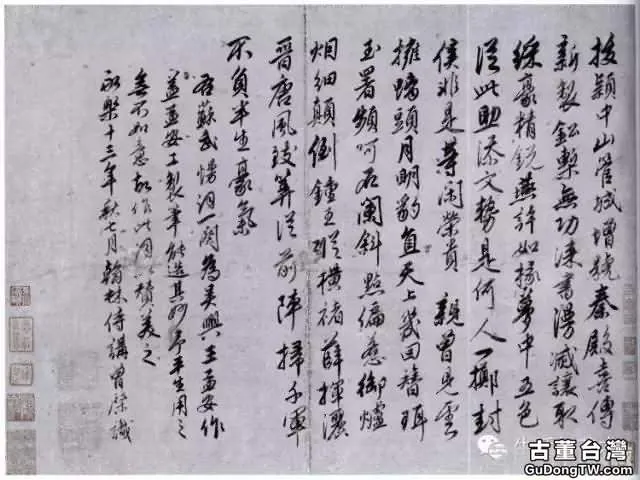 拔穎中山管城增號秦殿喜傳
新製鉛槧無功漆書漫滅讓取
綵豪精銳燕許如椽夢中五色
從此助添文勢是何人一擲封
侯非是等閑榮貴 親曾見雲
擁螭頭月明豹直天上幾回簪珥
玉署頻呵石闌斜點偏惹御爐
烟細顛倒鍾王縱橫褚薛揮灑
晉唐風致筭從前陣掃千軍
不負半生豪氣
右蘇武慢詞一闋為吳興王孟安作
蓋孟安工製筆能造其妙予平生用之
無不如意故作此詞以贊美之
永樂十三年秋七月翰林侍講曾棨識
古董台灣
GuDongTW.com